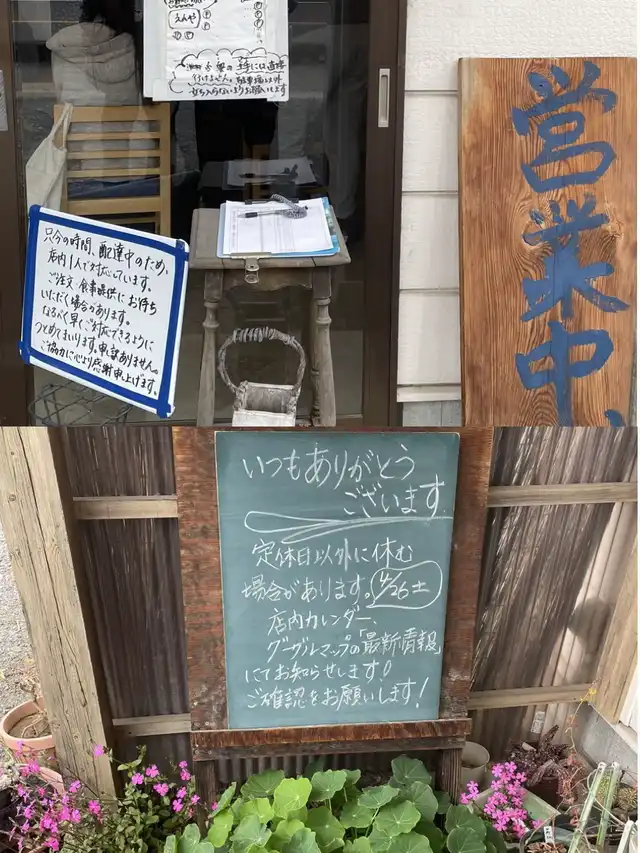 えんや
行けません。駐車場以外
只今の時間、配達中のため、
店内1人で対応しています。
ご注文・食事提供にお待ち
いただく場合があります。
なるべく早くご対応できるように
つとめてまいります。申し訳ありません。
ご協力に心より感謝申し上げます。
営業中、
いつもありがとう
ございます
定休日以外に休む
場合があります。4/26土
店内カレンダー、
グーグルマップの「最新情報」
にてお知らせします!
ご確認をお願いします!